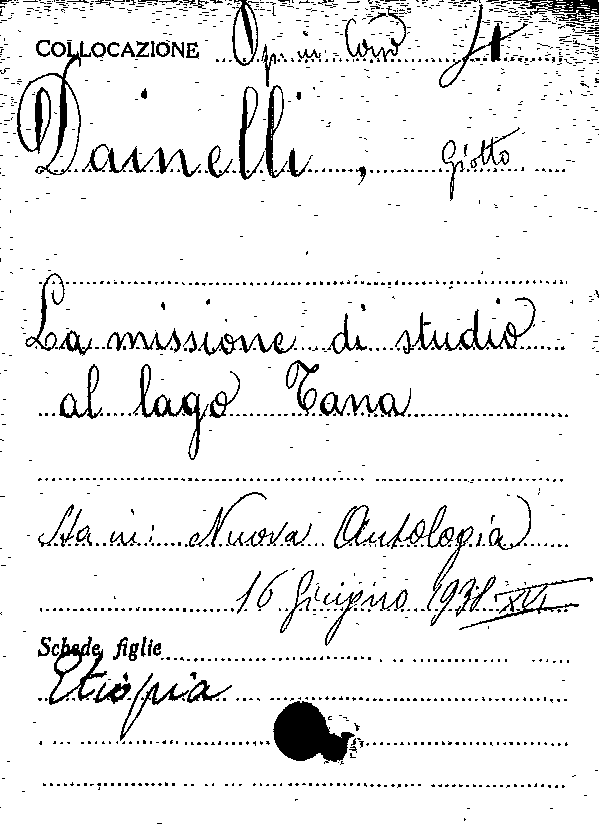 COLLOCAZIONE Op. in Cons
Dainelli, Giotto
La missione di studio
al lago Tana
Sta in: Nuova Antologia
16 Giugno 1938 XVI
Schede figlie
Etiopia